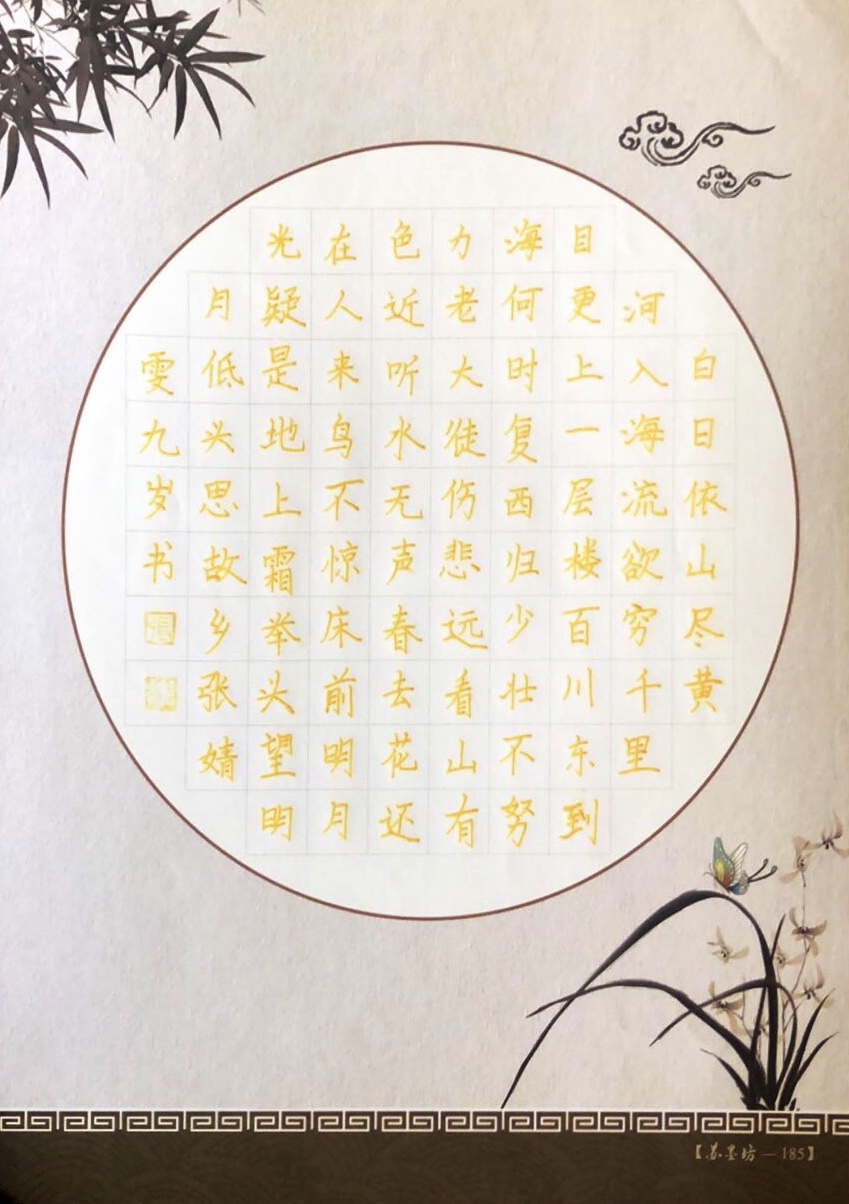 白日依山尽黄
河入海流欲穷千里
目更上一层楼百川东到
海何时复西归少壮不努
力老大徒伤悲远看山有
色近听水无声春去花还
在人来鸟不惊床前明月
光疑是地上霜举头望明
月低头思故乡张婧
雯九岁书
【苏墨坊—185】